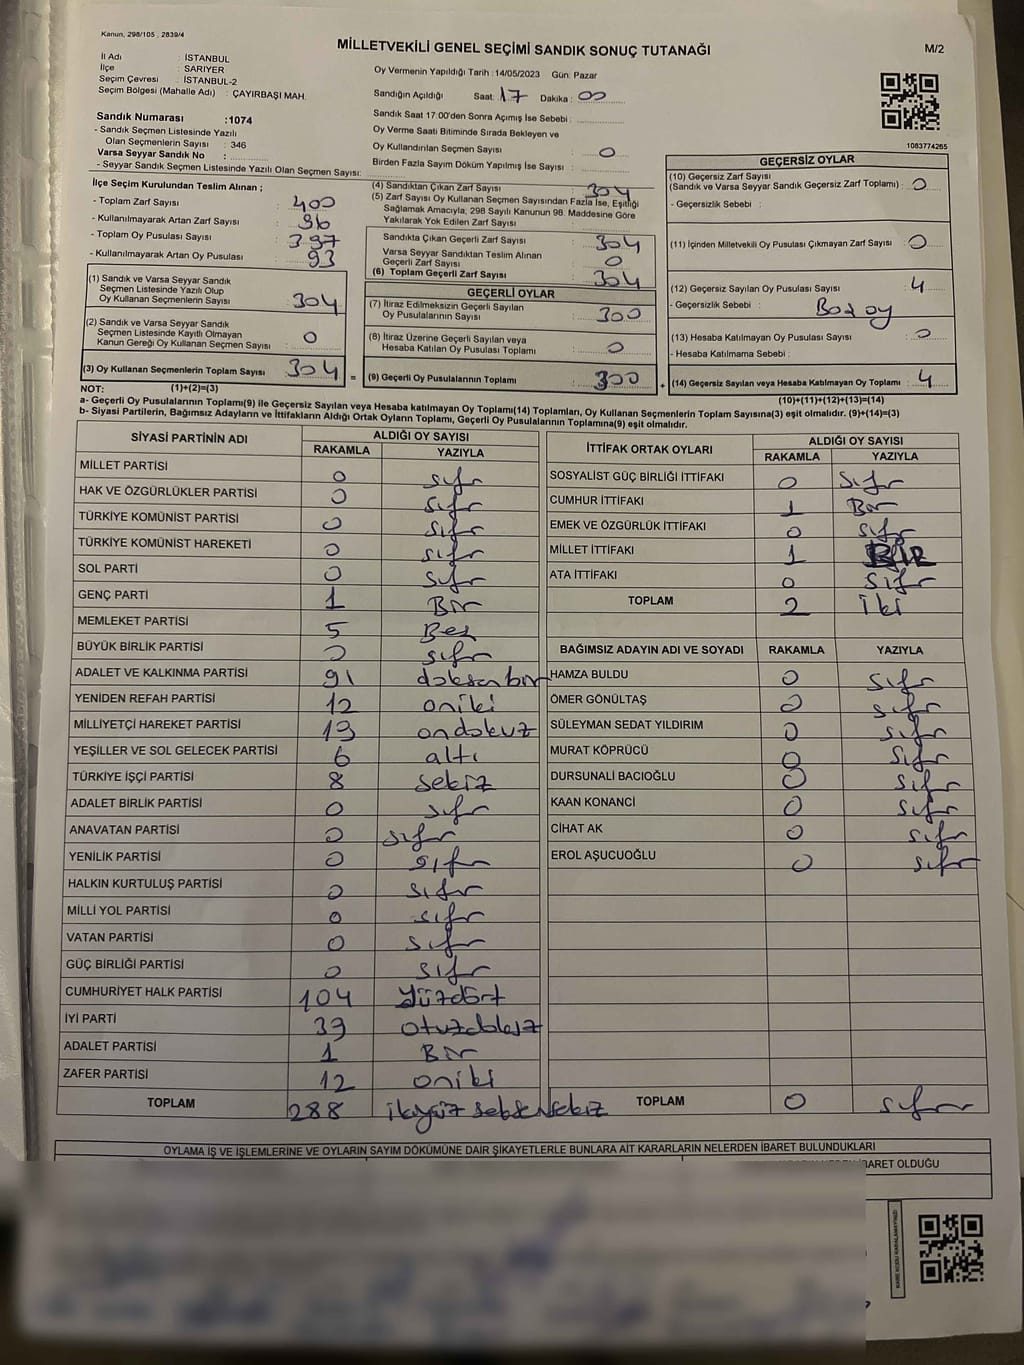 Kanun, 298/105 , 2839/4
MİLLETVEKİLİ GENEL SEÇİMİ SANDIK SONUÇ TUTANAĞI
M/2
İl Adı : İSTANBUL
İlçe : SARIYER
Seçim Çevresi : İSTANBUL-2
Seçim Bölgesi (Mahalle Adı) : ÇAYIRBAŞI MAH.
Sandık Numarası :1074
- Sandık Seçmen Listesinde Yazılı
Olan Seçmenlerin Sayısı : 346
Varsa Seyyar Sandık No :
- Seyyar Sandık Seçmen Listesinde Yazılı Olan Seçmen Sayısı:
Oy Vermenin Yapıldığı Tarih :14/05/2023 Gün: Pazar
Sandığın Açıldığı Saat: 17 Dakika : 00
Sandık Saat 17.00'den Sonra Açımış İse Sebebi :
Oy Verme Saati Bitiminde Sırada Bekleyen ve
Oy Kullandırılan Seçmen Sayısı : 0
Birden Fazla Sayım Döküm Yapılmış İse Sayısı :
1083774265
İlçe Seçim Kurulundan Teslim Alınan ;
- Toplam Zarf Sayısı : 400
- Kullanılmayarak Artan Zarf Sayısı : 96
- Toplam Oy Pusulası Sayısı : 397
- Kullanılmayarak Artan Oy Pusulası : 93
(1) Sandık ve Varsa Seyyar Sandık
Seçmen Listesinde Yazılı Olup
Oy Kullanan Seçmenlerin Sayısı : 304
(2) Sandık ve Varsa Seyyar Sandık
Seçmen Listesinde Kayıtlı Olmayan
Kanun Gereği Oy Kullanan Seçmen Sayısı : 0
(3) Oy Kullanan Seçmenlerin Toplam Sayısı : 304 =
(4) Sandıktan Çıkan Zarf Sayısı : 304
(5) Zarf Sayısı Oy Kullanan Seçmen Sayısından Fazla İse, Eşitliği
Sağlamak Amacıyla, 298 Sayılı Kanunun 98. Maddesine Göre
Yakılarak Yok Edilen Zarf Sayısı :
Sandıkta Çıkan Geçerli Zarf Sayısı : 304
Varsa Seyyar Sandıktan Teslim Alınan
Geçerli Zarf Sayısı : 0
(6) Toplam Geçerli Zarf Sayısı : 304
GEÇERLİ OYLAR
(7) İtiraz Edilmeksizin Geçerli Sayılan
Oy Pusulalarının Sayısı : 300
(8) İtiraz Üzerine Geçerli Sayılan veya
Hesaba Katılan Oy Pusulası Toplamı : 0
(9) Geçerli Oy Pusulalarının Toplamı : 300 +
GEÇERSİZ OYLAR
(10) Geçersiz Zarf Sayısı
(Sandık ve Varsa Seyyar Sandık Geçersiz Zarf Toplamı) : 0
- Geçersizlik Sebebi :
(11) İçinden Milletvekili Oy Pusulası Çıkmayan Zarf Sayısı : 0
(12) Geçersiz Sayılan Oy Pusulası Sayısı : 4
- Geçersizlik Sebebi : Boş oy
(13) Hesaba Katılmayan Oy Pusulası Sayısı : 0
- Hesaba Katılmama Sebebi :
(14) Geçersiz Sayılan veya Hesaba Katılmayan Oy Toplamı : 4
NOT: (1)+(2)=(3)
(10)+(11)+(12)+(13)=(14)
a- Geçerli Oy Pusulalarının Toplamı(9) ile Geçersiz Sayılan veya Hesaba katılmayan Oy Toplamı(14) Toplamları, Oy Kullanan Seçmenlerin Toplam Sayısına(3) eşit olmalıdır. (9)+(14)=(3)
b- Siyasi Partilerin, Bağımsız Adayların ve İttifakların Aldığı Ortak Oyların Toplamı, Geçerli Oy Pusulalarının Toplamına(9) eşit olmalıdır.
SİYASİ PARTİNİN ADI ALDIĞI OY SAYISI
RAKAMLA YAZIYLA
MİLLET PARTİSİ 0 sıfır
HAK VE ÖZGÜRLÜKLER PARTİSİ 0 sıfır
TÜRKİYE KOMÜNİST PARTİSİ 0 sıfır
TÜRKİYE KOMÜNİST HAREKETİ 0 sıfır
SOL PARTİ 0 sıfır
GENÇ PARTİ 1 Bir
MEMLEKET PARTİSİ 5 Beş
BÜYÜK BİRLİK PARTİSİ 0 sıfır
ADALET VE KALKINMA PARTİSİ 91 doksan bir
YENİDEN REFAH PARTİSİ 12 oniki
MİLLİYETÇİ HAREKET PARTİSİ 19 ondokuz
YEŞİLLER VE SOL GELECEK PARTİSİ 6 altı
TÜRKİYE İŞÇİ PARTİSİ 8 sekiz
ADALET BİRLİK PARTİSİ 0 sıfır
ANAVATAN PARTİSİ 0 sıfır
YENİLİK PARTİSİ 0 sıfır
HALKIN KURTULUŞ PARTİSİ 0 sıfır
MİLLİ YOL PARTİSİ 0 sıfır
VATAN PARTİSİ 0 sıfır
GÜÇ BİRLİĞİ PARTİSİ 0 sıfır
CUMHURİYET HALK PARTİSİ 104 Yüzdört
İYİ PARTİ 39 otuzdokuz
ADALET PARTİSİ 1 Bir
ZAFER PARTİSİ 12 oniki
TOPLAM 288 ikiyüz seksensekiz
İTTİFAK ORTAK OYLARI ALDIĞI OY SAYISI
RAKAMLA YAZIYLA
SOSYALİST GÜÇ BİRLİĞİ İTTİFAKI 0 sıfır
CUMHUR İTTİFAKI 1 Bir
EMEK VE ÖZGÜRLÜK İTTİFAKI 0 sıfır
MİLLET İTTİFAKI 1 BİR
ATA İTTİFAKI 0 sıfır
TOPLAM 2 iki
BAĞIMSIZ ADAYIN ADI VE SOYADI RAKAMLA YAZIYLA
HAMZA BULDU 0 sıfır
ÖMER GÖNÜLTAŞ 0 sıfır
SÜLEYMAN SEDAT YILDIRIM 0 sıfır
MURAT KÖPRÜCÜ 0 sıfır
DURSUNALİ BACIOĞLU 0 sıfır
KAAN KONANCİ 0 sıfır
CİHAT AK 0 sıfır
EROL AŞUCUOĞLU 0 sıfır
TOPLAM 0 sıfır
OYLAMA İŞ VE İŞLEMLERİNE VE OYLARIN SAYIM DÖKÜMÜNE DAİR ŞİKAYETLERLE BUNLARA AİT KARARLARIN NELERDEN İBARET BULUNDUKLARI
İBARET OLDUĞU
KARE KODU KARALAMAYINIZ!